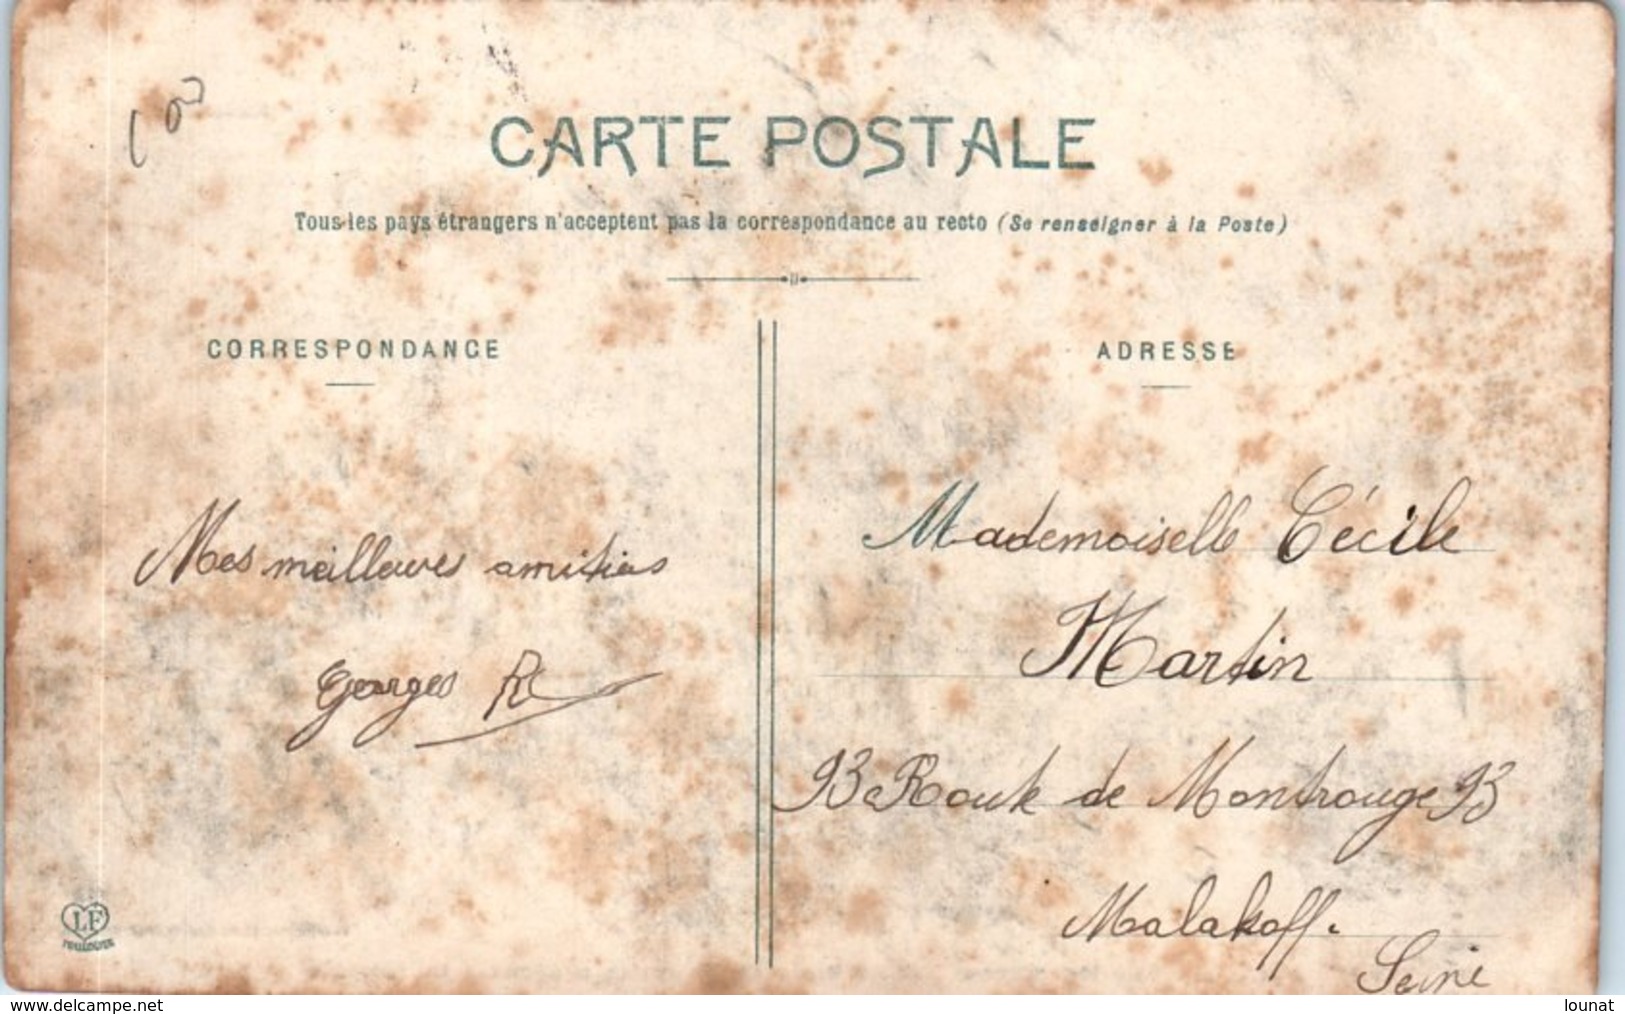 100
CARTE POSTALE
Tous les pays étrangers n'acceptent pas la correspondance au recto (Se renseigner à la Poste)
CORRESPONDANCE
Mes meilleures amitiés
Georges R
ADRESSE
Mademoiselle Cécile
Martin
93 Route de Montrouge 93
Malakoff.
Seine
LF
TOULOUSE
www.delcampe.net
lounat